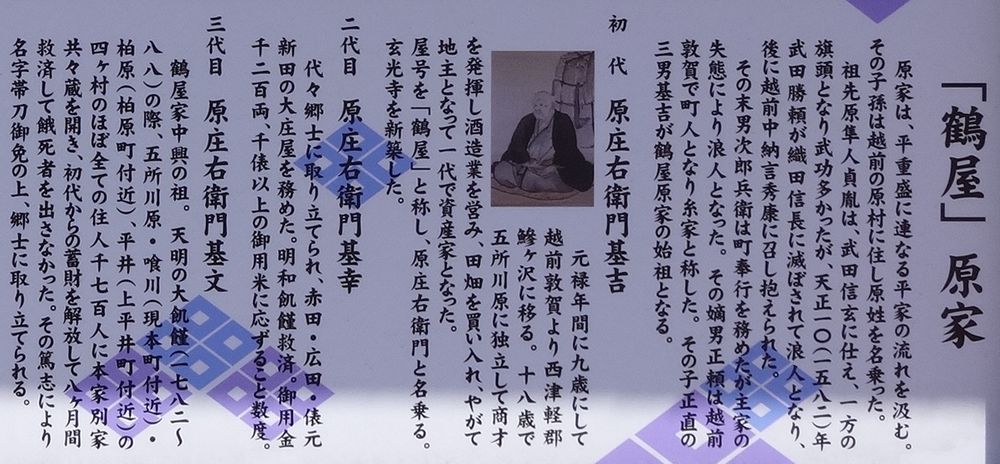 「鶴屋」原家
原家は、平重盛に連なる平家の流れを汲む。
その子孫は越前の原村に住し原姓を名乗った。
祖先原隼人貞胤は、武田信玄に仕え、一方の
旗頭となり武功多かったが、天正一〇(一五八二)年
武田勝頼が織田信長に滅ぼされて浪人となり、
後に越前中納言秀康に召し抱えられた。
その末男次郎兵衛は町奉行を務めたが主家の
失態により浪人となった。その嫡男正頼は越前
敦賀で町人となり糸家と称した。その子正直の
三男基吉が鶴屋原家の始祖となる。
初代 原庄右衛門基吉
元禄年間に九歳にして
越前敦賀より西津軽郡
鰺ヶ沢に移る。十八歳で
五所川原に独立して商才
を発揮し酒造業を営み、田畑を買い入れ、やがて
地主となって一代で資産家となった。
屋号を「鶴屋」と称し、原庄右衛門と名乗る。
玄光寺を新築した。
二代目 原庄右衛門基幸
代々郷士に取り立てられ、赤田・広田・俵元
新田の大庄屋を務めた。明和飢饉救済。御用金
千二百両、千俵以上の御用米に応ずること数度。
三代目 原庄右衛門基文
鶴屋家中興の祖。天明の大飢饉(一七八二〜
八八)の際、五所川原・喰川(現本町付近)・
柏原(柏原町付近)、平井(上平井町付近)の
四ヶ村のほぼ全ての住人千七百人に本家別家
共々蔵を開き、初代からの蓄財を解放して八ヶ月間
救済して餓死者を出さなかった。その篤志により
名字帯刀御免の上、郷士に取り立てられる。